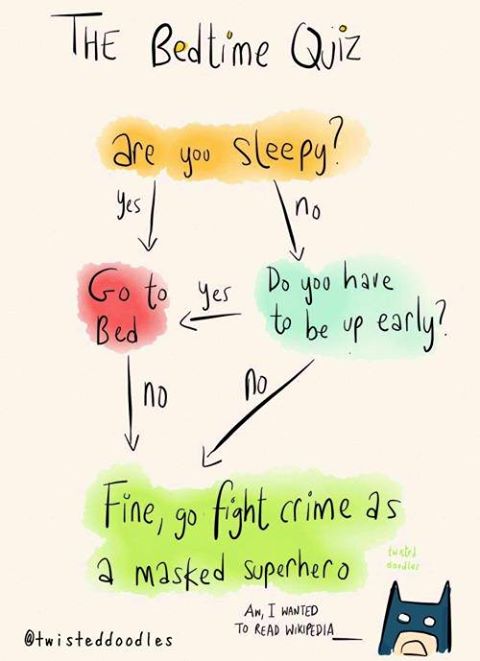 THE Bedtime Quiz
are you sleepy?
yes
no
Go to
Bed
yes
Do you have
to be up early?
no
no
Fine, go fight crime as
a masked superhero
twisted
doodles
AW, I WANTED
TO READ WIKIPEDIA
@twisteddoodles